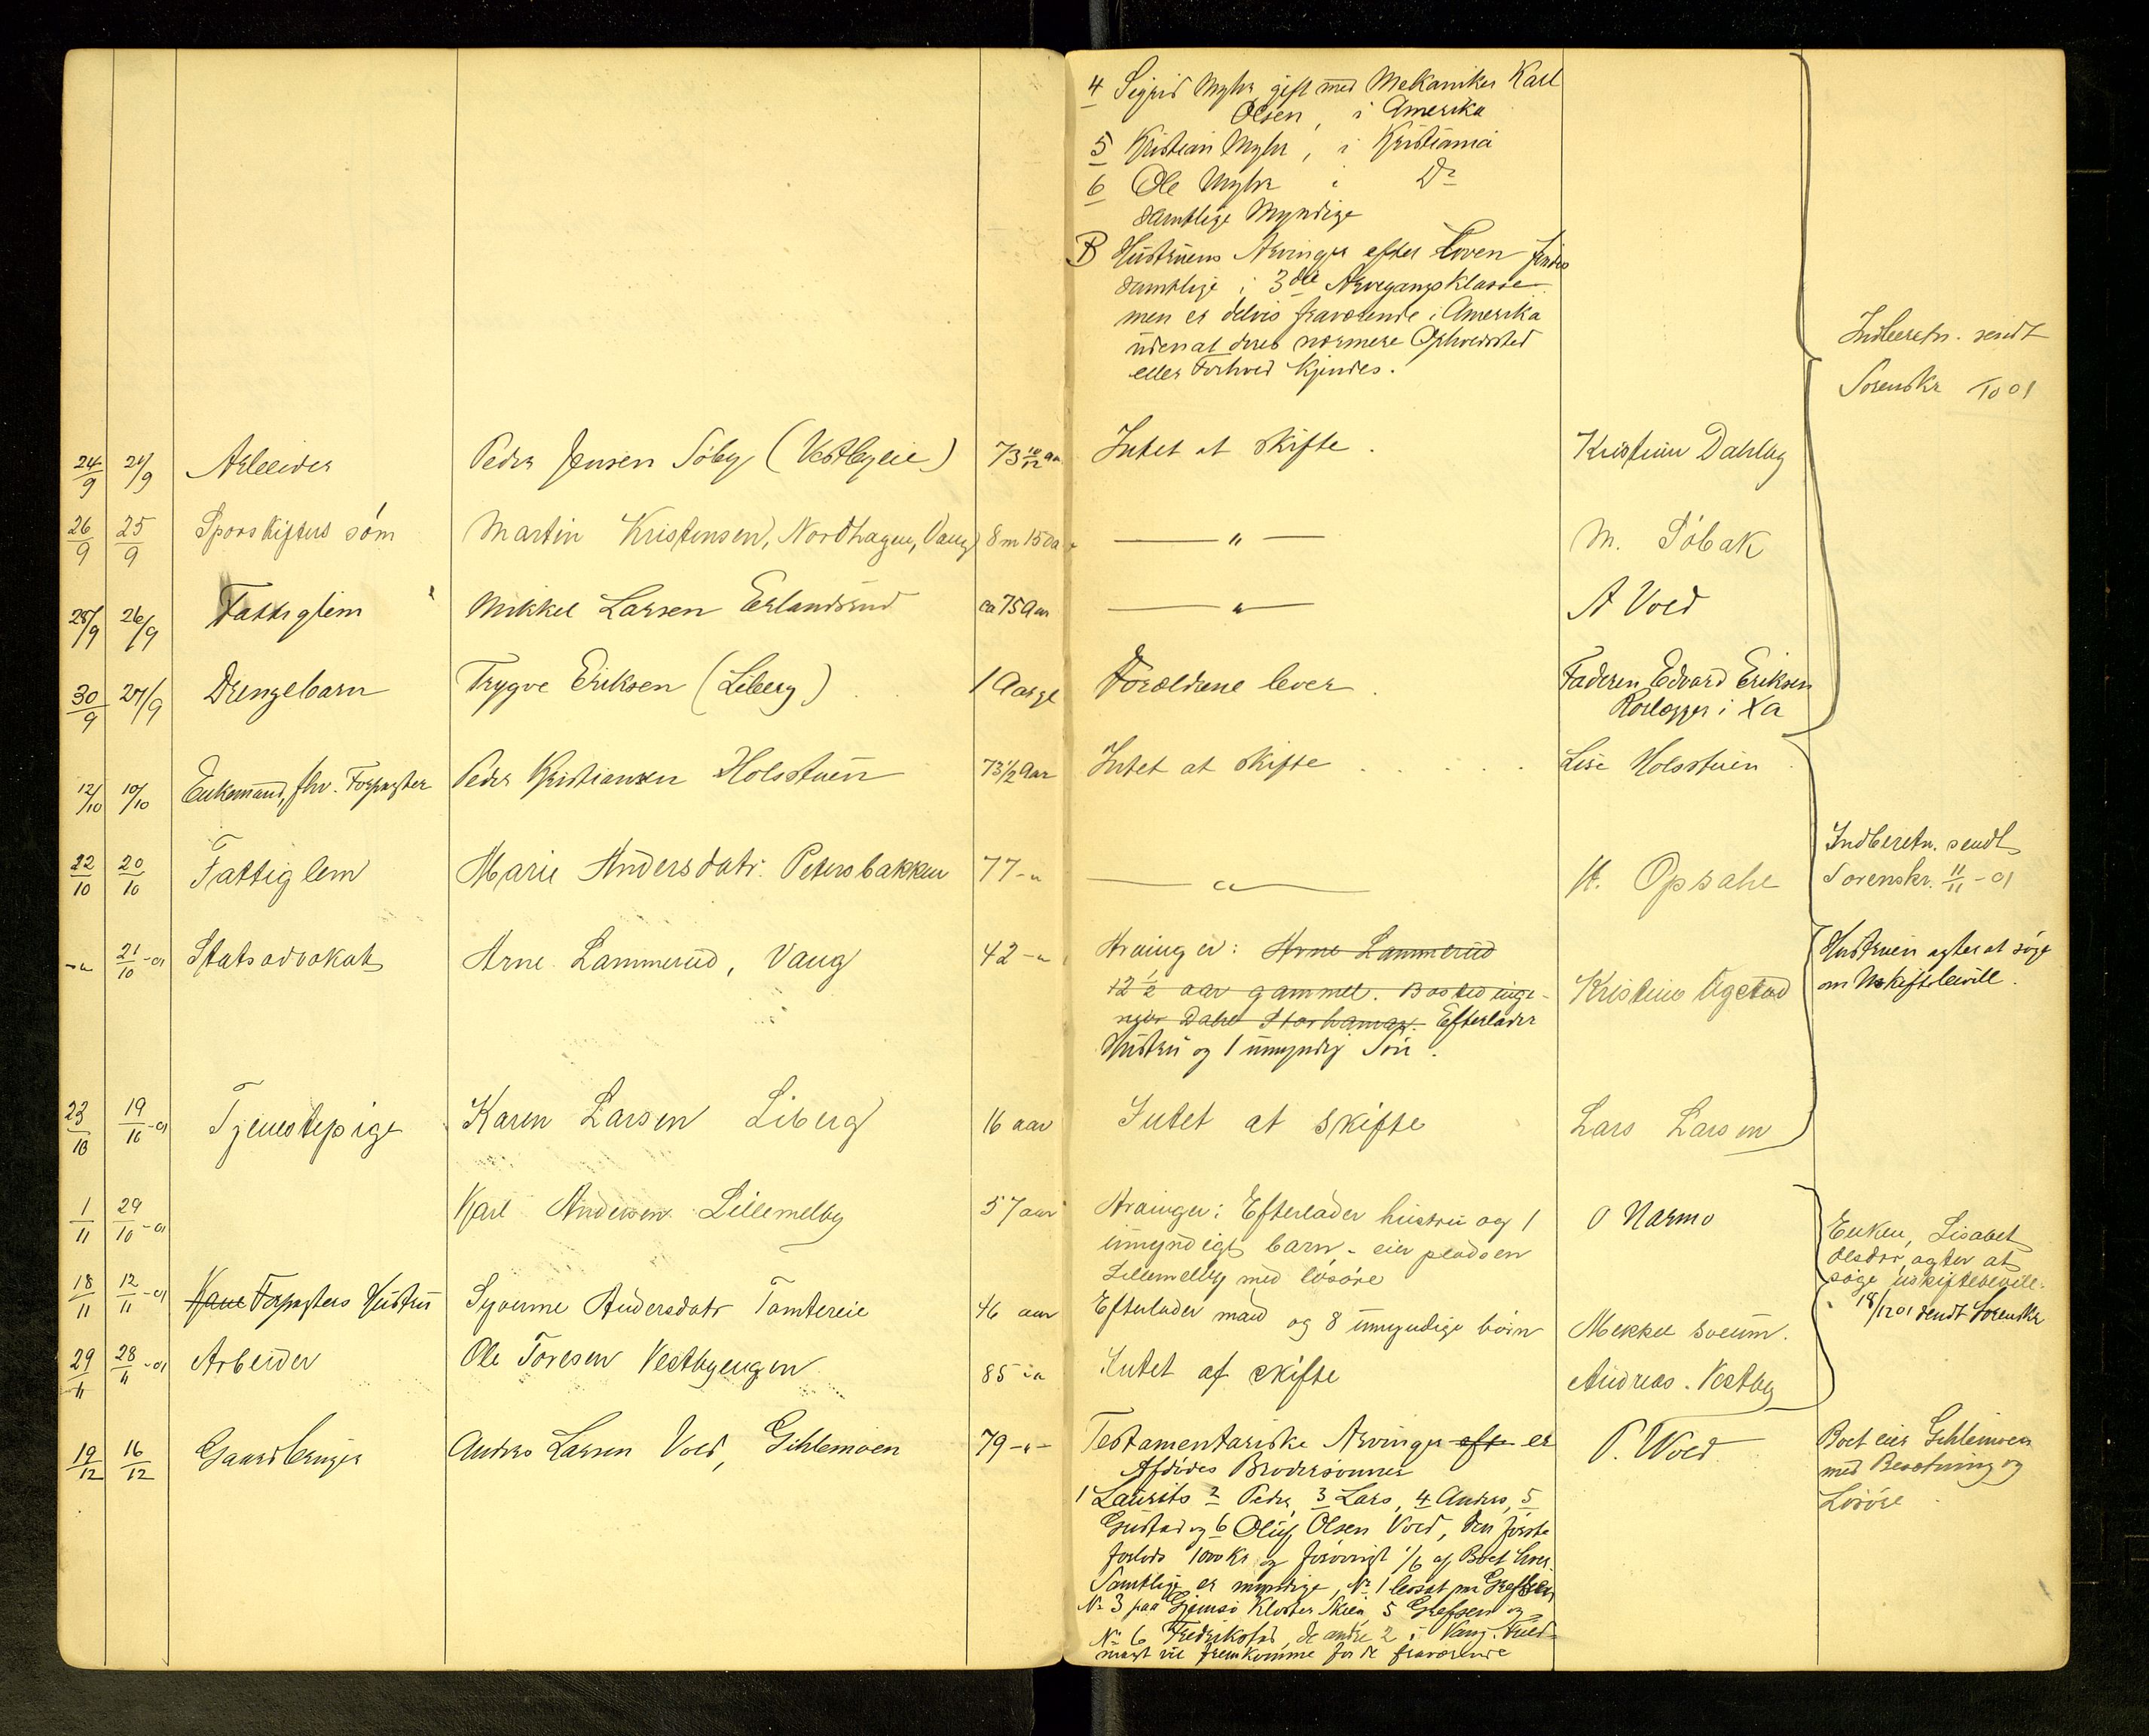 4 Sigrid Myhr gift med Mekaniker Karl
Olsen, i Amerika
5 Kristian Myhr, i Kristiania
6 Ole Myhr i Do
samtlige Myndige
B Hustruens Arvinger efter Loven findes
samtlige i 3die Arvegangsklasse
men er delvis fraværende i Amerika
uden at deres nærmere Opholdssted
eller Forhold kjendes.
Indberetn. sendt
Sorenskr 01
24/9 24/9 Arbeider Peder Jensen Söby (Vestbyeie) 73 10/12 aar Intet at skifte. Kristian Dahlby
26/9 25/9 Sporskifters sön Martin Kristensen, Nordhagen, Vang 8 m 15 da — " — M. Söbak
28/9 26/9 Fattiglem Mikkel Larsen Erlandsrud ca 75 Aar — " — A Vold
30/9 27/9 Drengebarn Trygve Eriksen (Liberg) 1 Aarge Forældrene lever. Faderen Edvard Eriksen
Rörlægger i Xa
12/10 10/10 Enkemand, fhv. Forpagter Peder Kristiansen Holsstuen 73 1/2 Aar Intet at skifte . . . . . Lise Holsstuen
22/10 20/10 Fattiglem Marie Andersdatr. Petersbakken 77 - " — " — H. Opsahl
Indberetn. sendt
Sorenskr. 11/11 - 01
- " 21/10 - 01 Statsadvokat Arne Lammerud, Vang 42 - " Arvinger: Arne Lammerud
12 1/2 aar gammel. Bosted inge-
niör Dahl Storhamar. Efterlader
Hustru og 1 umyndig Sön.
Kristine Ugstad
Hustruen agter at söge
om Uskiftebevill.
23/10 19/10 - 01 Tjenestepige Karen Larsen Liberg 16 aar Intet at skifte Lars Larsen
1/11 29/10 - 01 Karl Andersen Lillemelby 57 aar Arvinger: Efterlader hustru og 1
umyndigt barn - eier pladsen
Lillemelby med lösöre
O Narmo
Enken, Lisabet
Olsdtr, agter at
söge uskiftebevill.
18/12 01 sendt Sorenskr
18/11 12/11 - 01 Kaue Forpagters Hustru Andersdatr Tomtereie 46 aar Efterlader mand og 8 umyndige börn Mikkel Soelim.
29/11 28/11 - 01 Arbeider Ole Toresen Vestbyengen 85 - " Intet at skifte Andreas. Vestby
19/12 16/12 Gaardbruger Anders Larsen Vold, Gihlemoen 79 - " - Testamentariske Arvinger efte er
Afdödes Brodersönner
1 Laurits 2 Peder, 3 Lars, 4 Anders, 5
Gustav og 6 Oluf Olsen Vold, den förste
forlods 1000 Kr og forövrigt 1/6 af Boet hver.
Samtlige er myndige, No 1 bosat paa Grefsen,
No 3 paa Gjemsö Kloster Skien, 5 Grefsen og
No 6 Fredrikstad, de andre 2 i Vang. Fuld-
magt vil fremkomme for de fraværende
P. Wold
Boet eier Gihlemoen
med Besætning og
Lösöre